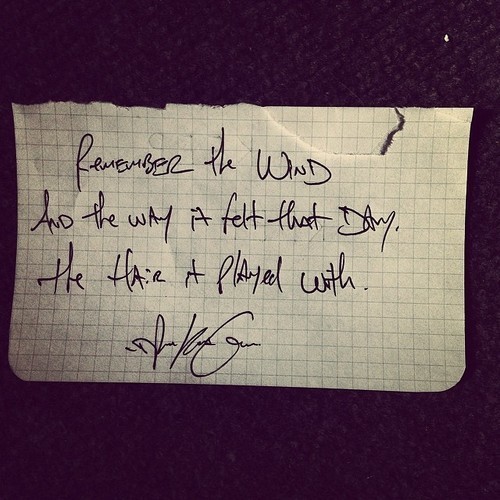 REMEMBER the WIND
AND the WAY it felt that DAY.
the HAiR it PlAyed with.